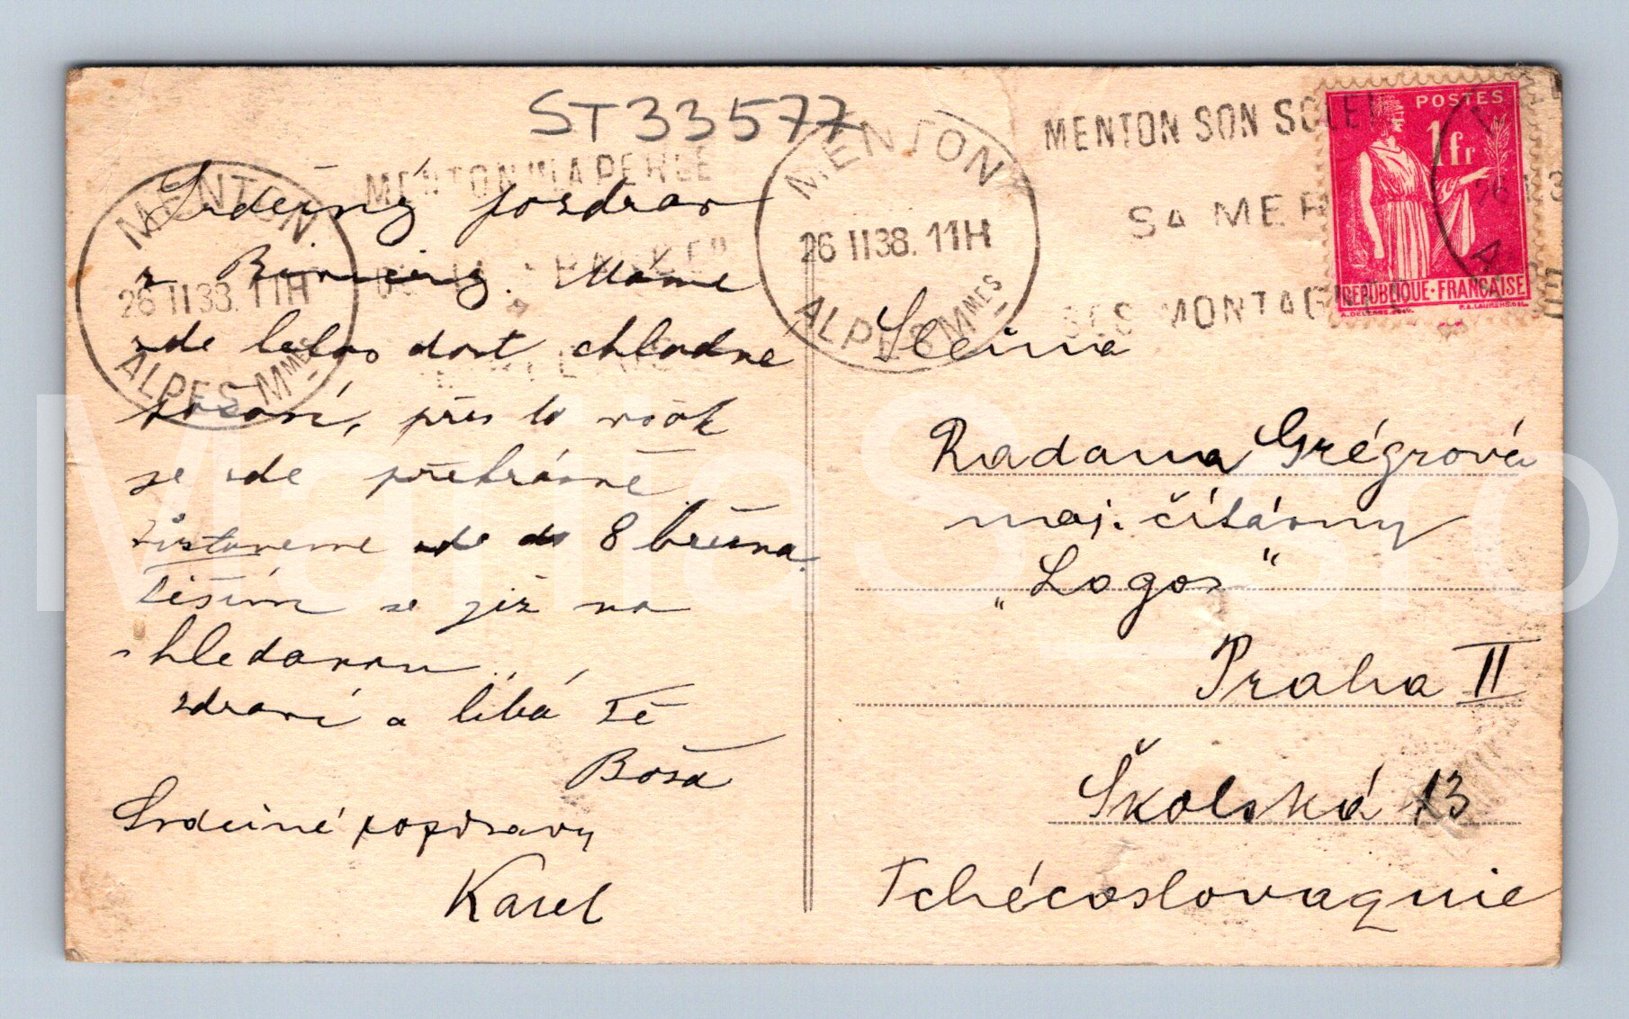 ST33577
MENTON LA PERLE
MENTON
26 II 38. 11H
ALPES Mmes
MENTON
26 II 38. 11H
ALPES Mmes
MENTON SON SOLEIL
SA MER
SES MONTAGNES
POSTES
1fr
RÉPUBLIQUE·FRANÇAISE
Srdečný pozdrav
z Máme
zde letos dost chladné
počasí, přes to však
se zde překrásně
zůstaneme zde do 8 března.
těším se již na
shledanou
zdraví a líbá Tě
Boža
Srdečné pozdravy
Karel
Slečna
Radana Grégrová
maj. čítárny
„Logos“
Praha II
Školská 13
Tchécoslovaquie